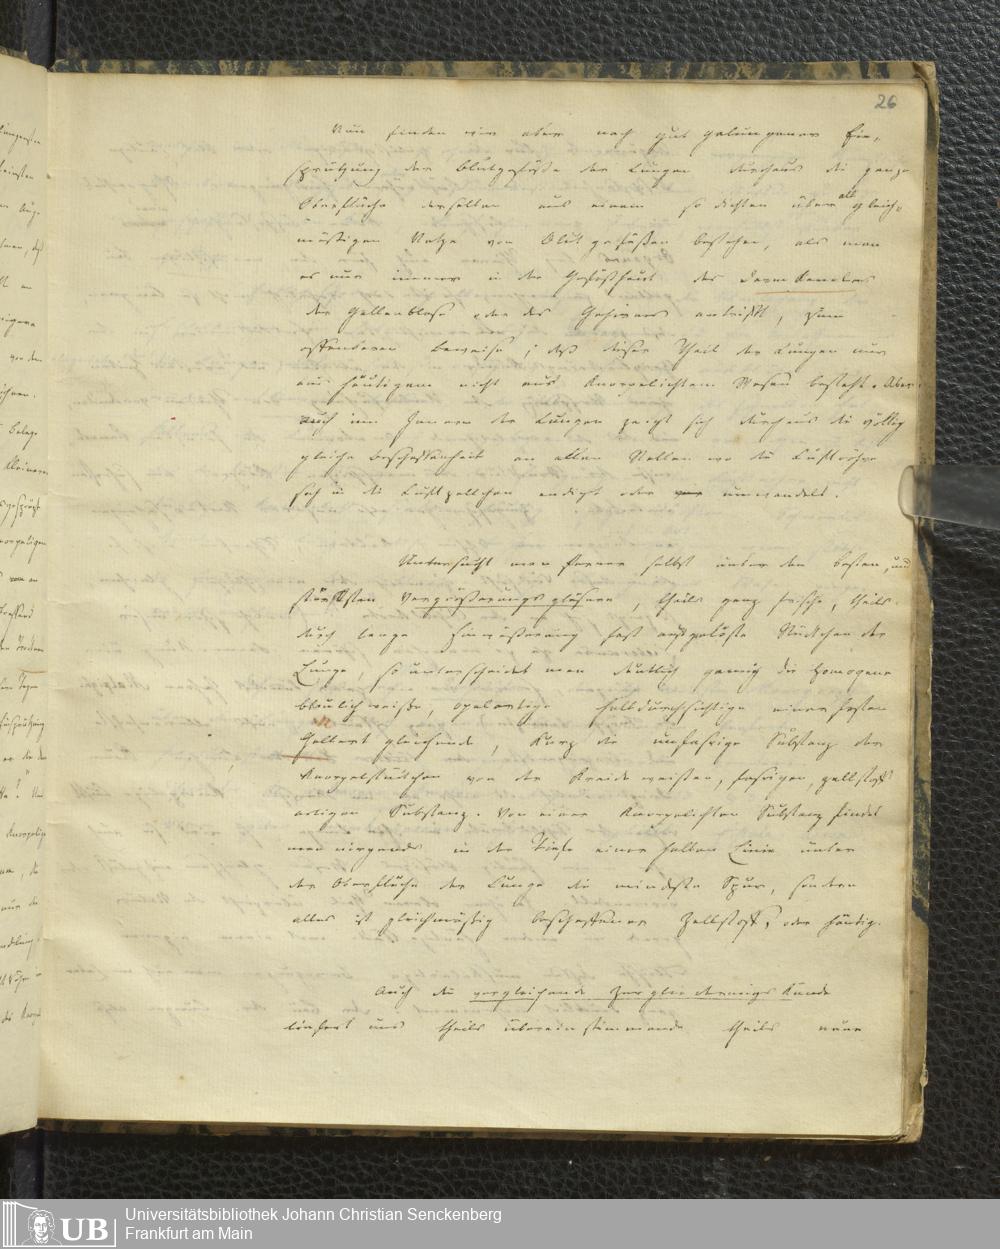 26
Nun finden wir aber nach gut gelungener Ein-
sprützung der Blutgefäße der Lungen durchaus die ganze
Oberfläche derselben aus einem so dichten über all gleich-
mäßigen Netze von Blutgefäßen bestehen, als man
es nur immer in der Gefäßhaut des Darmkanales
der Gallenblase oder des Gehirnes antrifft, zum
offenbaren Beweise; daß dieser Theil der Lungen nur
aus häutigem nicht aus knorpelichtem Wesen besteht. Aber
auch im Innern der Lungen zeigt sich durchaus die völlig
gleiche Beschaffenheit an allen Stellen wo die Luftröhre
sich in die Luftzellchen endigt oder umwandelt.
Untersucht man ferner selbst unter den besten, und
stärksten Vergrößerungsgläsern, theils ganz frische, theils
durch lange Einwässerung fast aufgelößte Stückchen der
Lunge, so unterscheidet man deutlich genug die homogene
bläulichweiße, opalartige halbdurchsichtige einer festen
Gallert gleichende, kurz die unfasrige Substanz der
Knorpelstückchen von der Kreide weißen, fasrigen, zellstoff
artigen Substanz. Von einer knorpelichten Substanz findet
man nirgends in der Tiefe einer halben Linie unter
der Oberfläche der Lunge die mindeste Spur, sondern
alles ist gleichmäßig beschaffener Zellstoff, oder häutig.
Auch die vergleichende Zergliederungs Kunde
liefert uns theils übereinstimmende theils neue
Universitätsbibliothek Johann Christian Senckenberg
UB
Frankfurt am Main